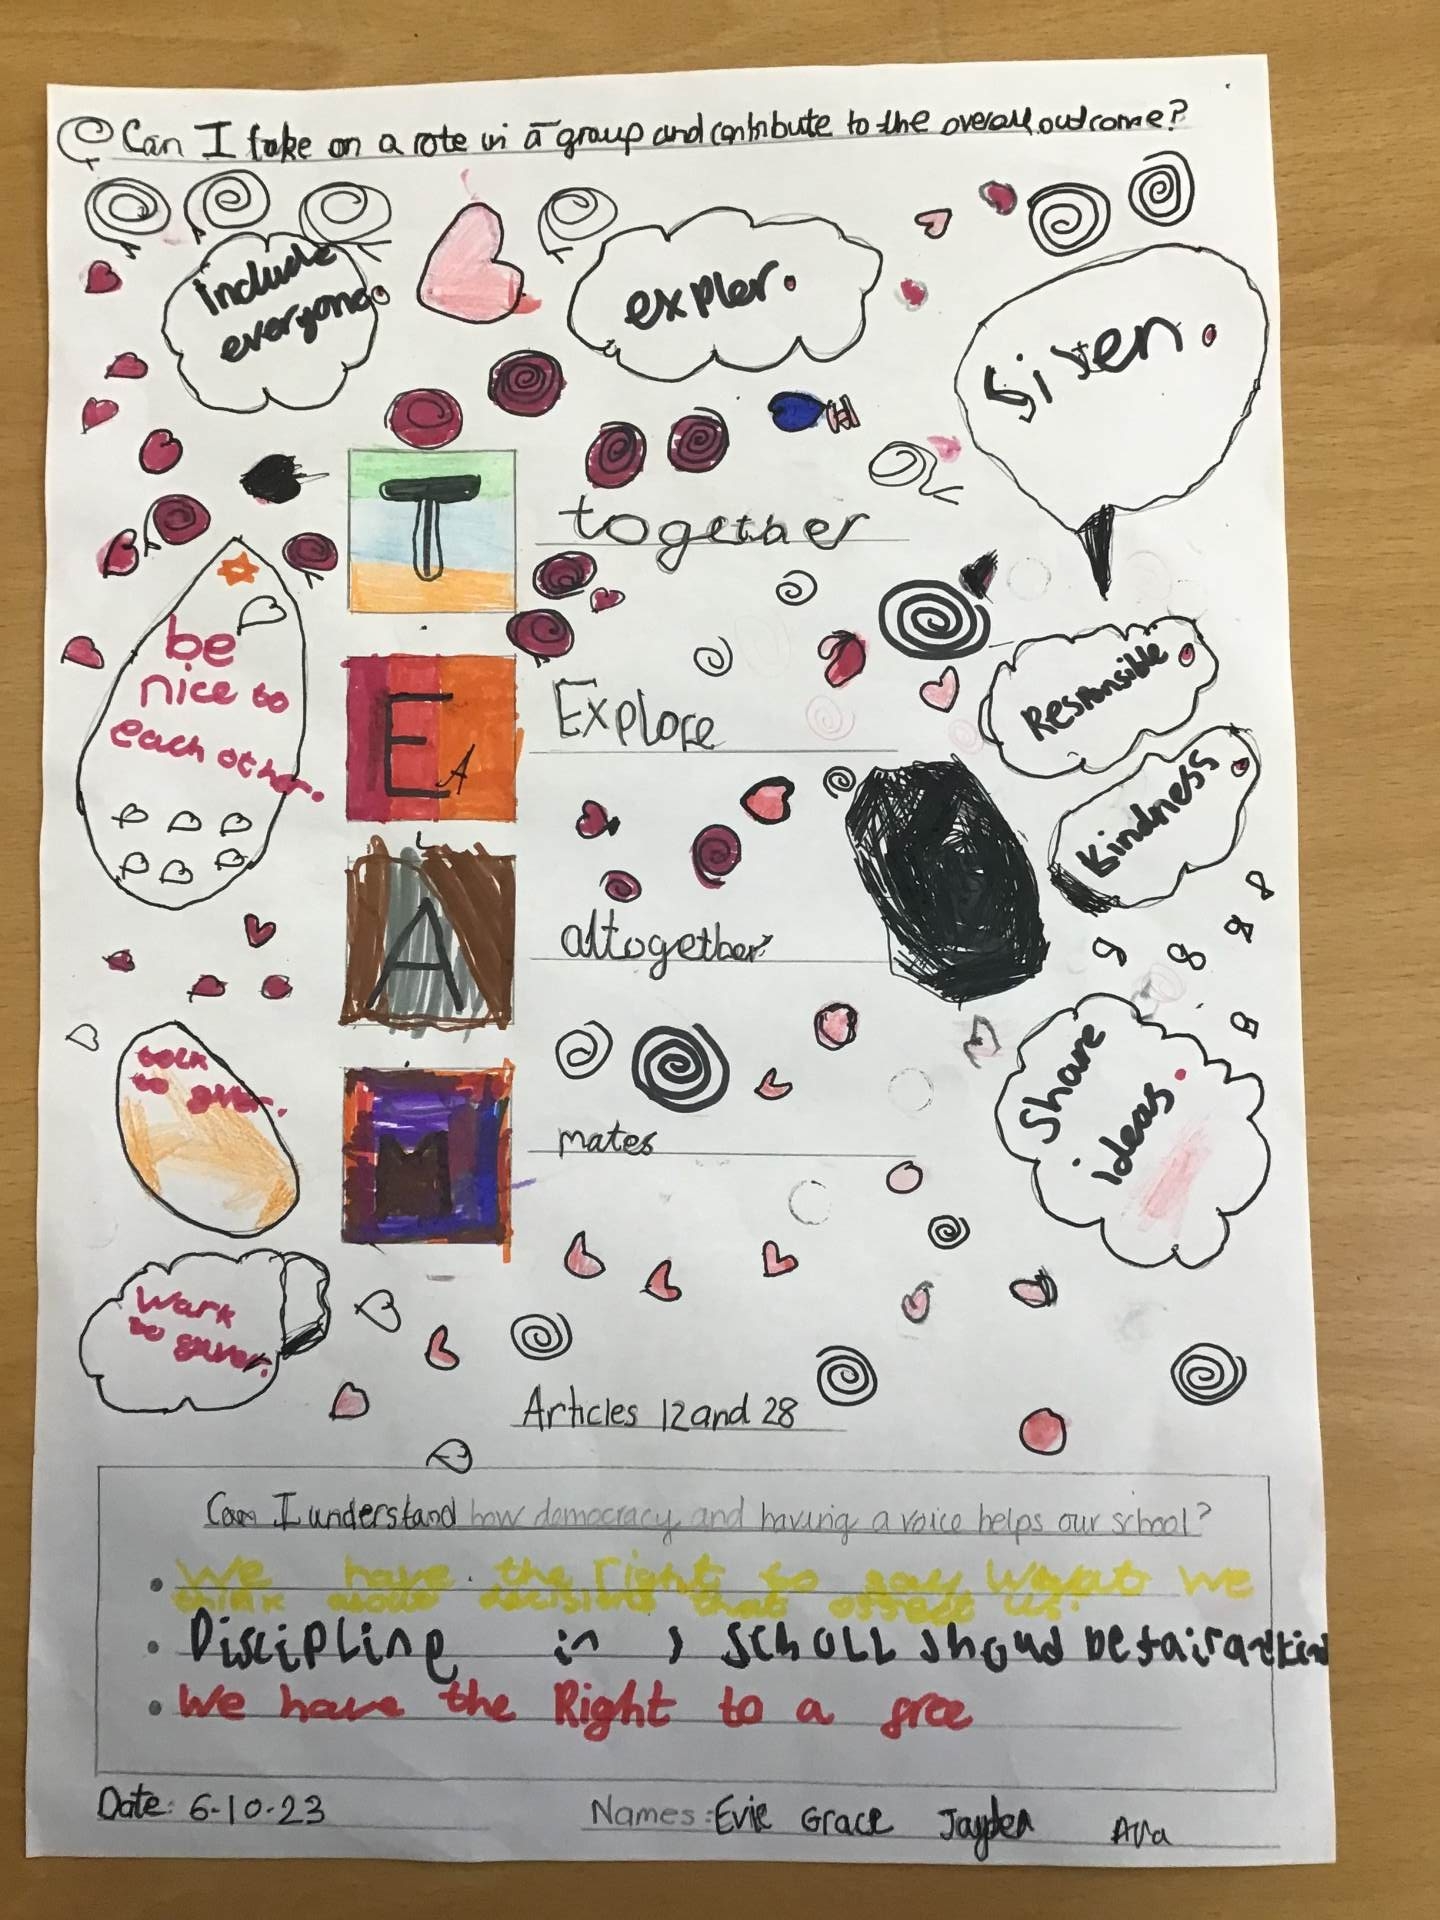 Can I take on a role in a group and contribute to the overall outcome?
include
everyone.
expler.
listen.
T together
be
nice to
each other.
E A Explore
Responsible
Kindness
A altogether
Share
ideas.
tolk
to gther.
M mates
Wark
to gether.
Articles 12 and 28
Can I understand how democracy and having a voice helps our school?
• We have the right to say what we
think about decisions that affect us.
• Discipline in scholl shoud be fair and kind
• We have the Right to a free
Date: 6-10-23
Names: Evie Grace Jayden Ava